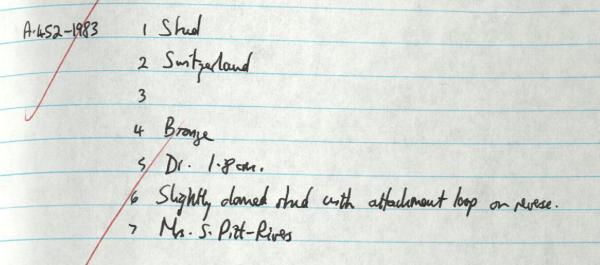 A.452-1983 1 Stud
2 Switzerland
3
4 Bronze
5 Dr. 1.8cm.
6 Slightly domed stud with attachment loop on reverse.
7 Mrs. S. Pitt-Rivers